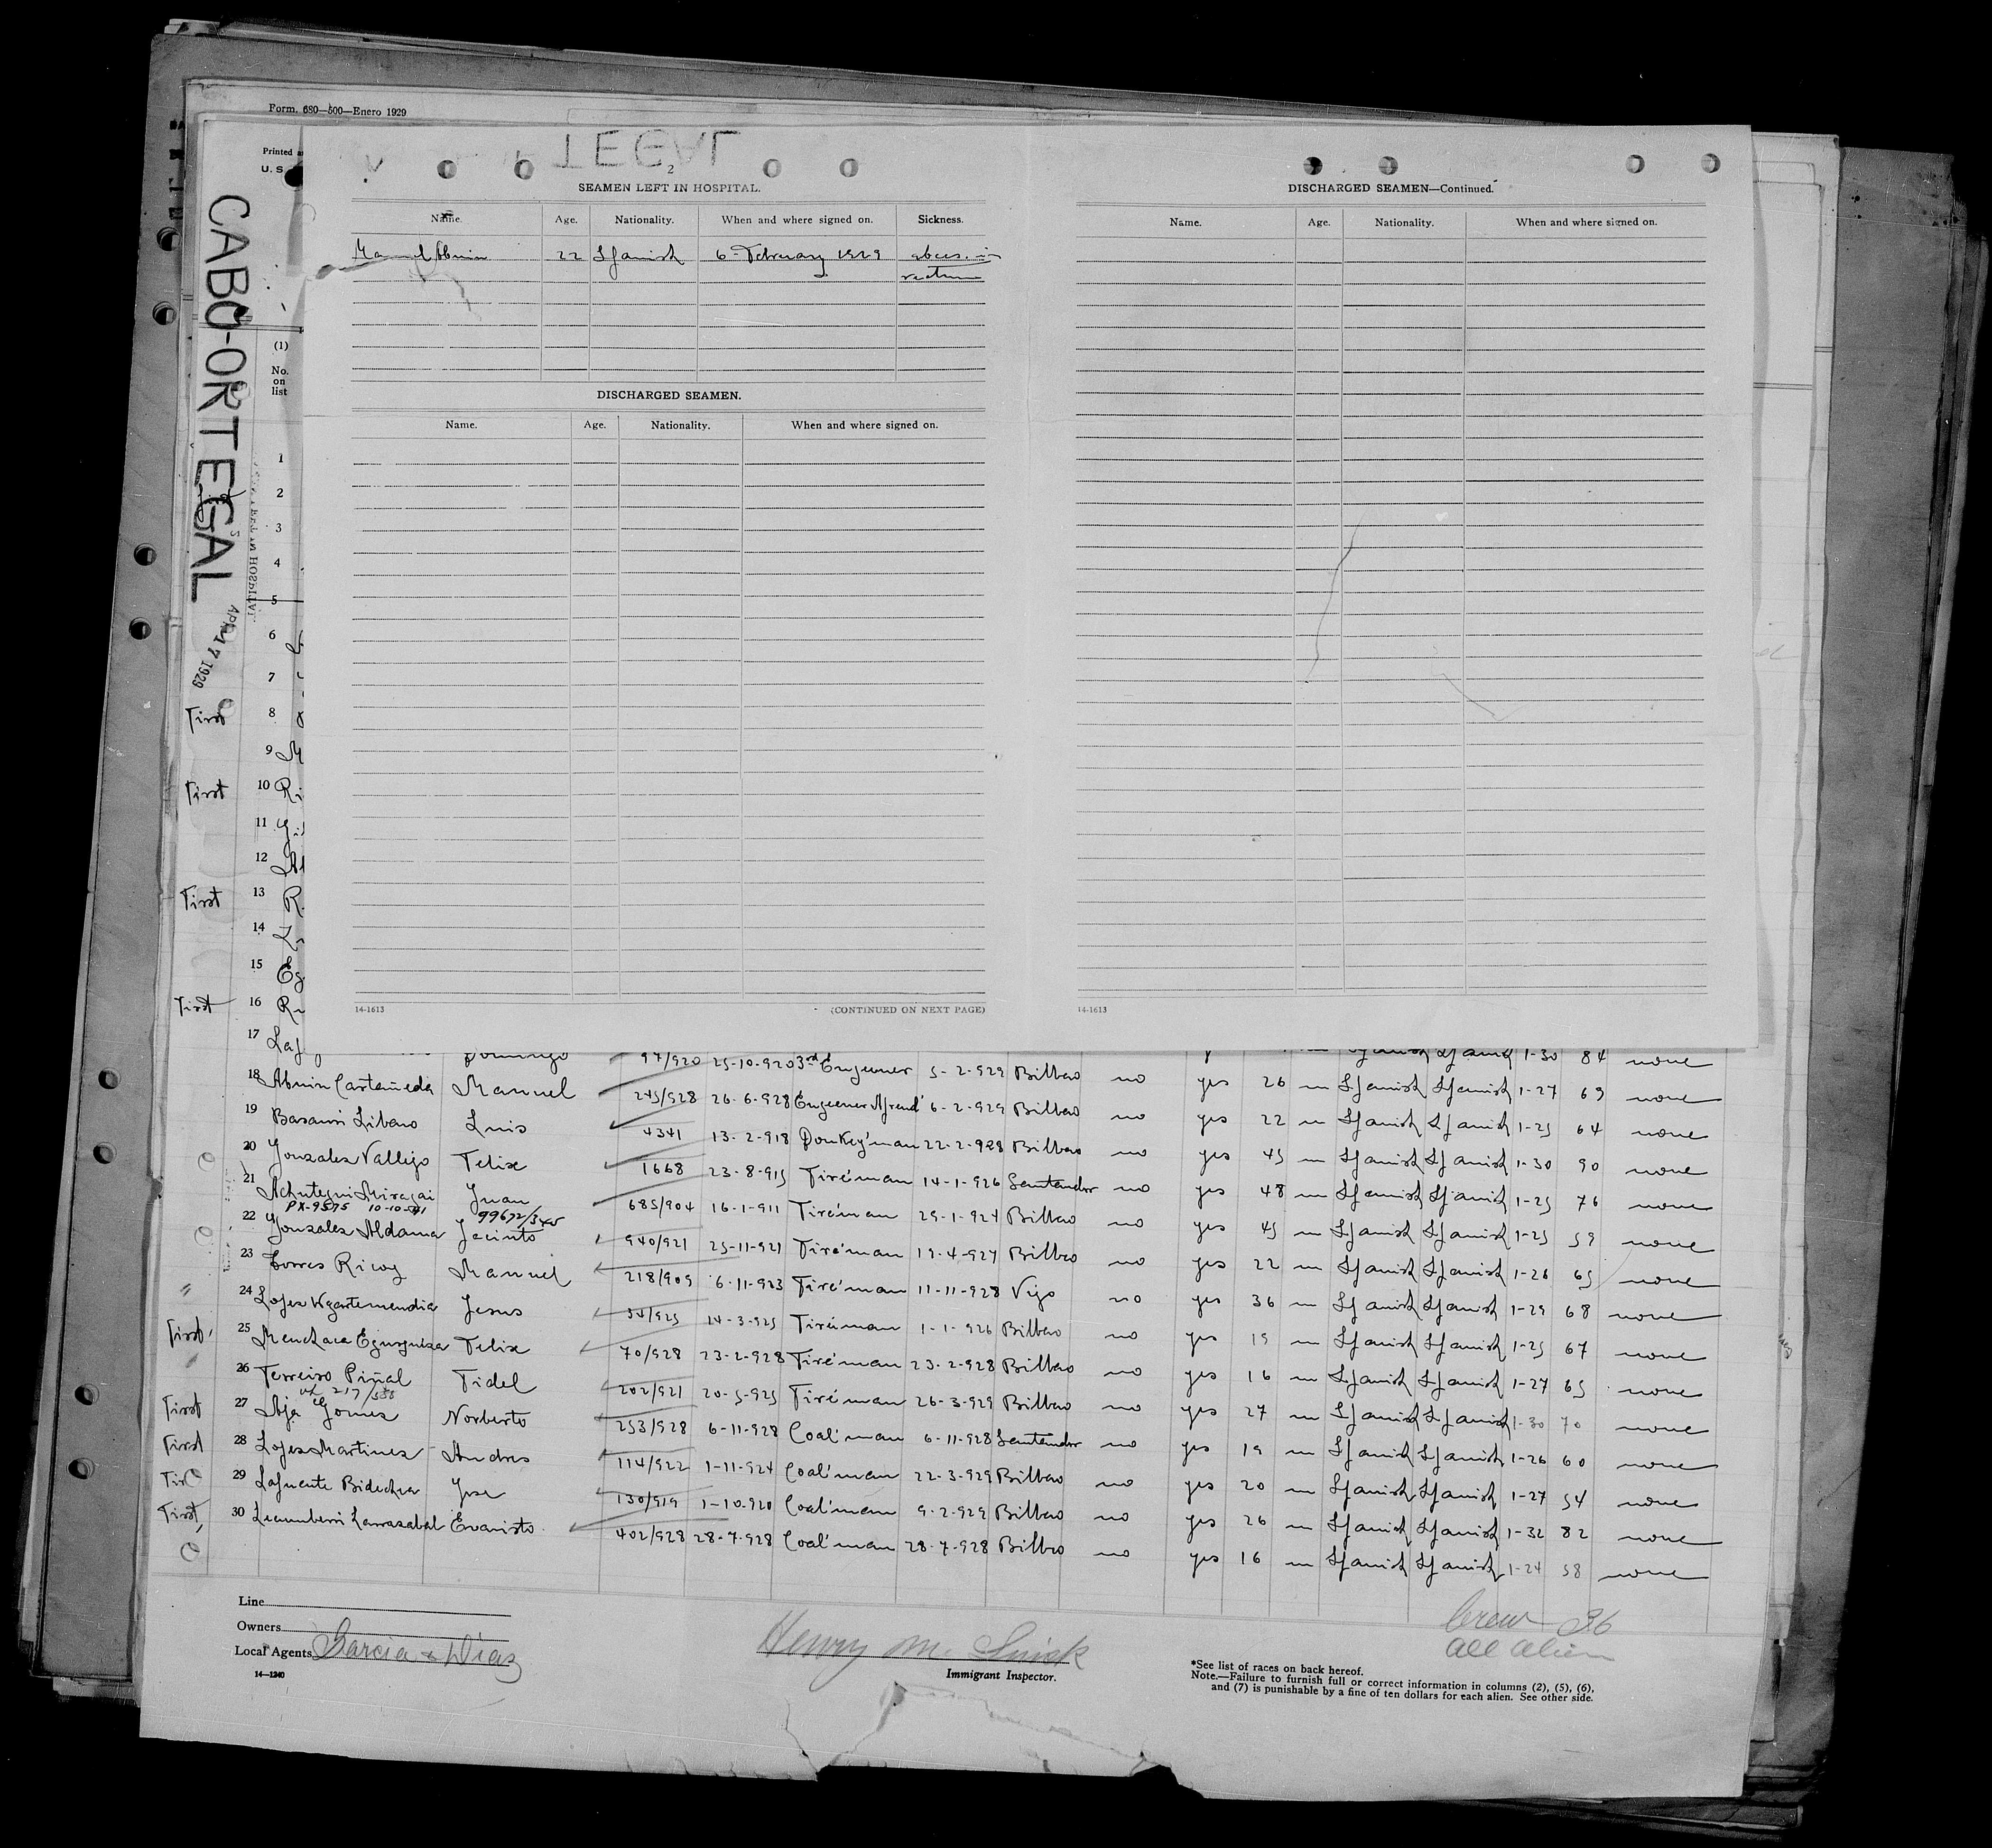 Form. 680—500—Enero 1929
Printed
U. S.
CABO-ORTEGAL
APR 17 1929
2
SEAMEN LEFT IN HOSPITAL.
Name. Age. Nationality. When and where signed on. Sickness.
Manuel Abuin 22 Spanish 6-February 1929 abces. in
rectum
DISCHARGED SEAMEN.
Name. Age. Nationality. When and where signed on.
14-1613 (CONTINUED ON NEXT PAGE)
DISCHARGED SEAMEN—Continued.
Name. Age. Nationality. When and where signed on.
14-1613
(1)
No.
on
list
1
2
3
4
5
6
7
First 8
9
First 10
11
12
First 13
14
15
First 16
17 Domingo 97/920 25-10-920 3rd Engeener 5-2-929 Bilbao no yes 26 m Spanish Spanish 1-30 84 none
18 Abuin Castañeda Manuel 245/928 26-6-928 Engeener 6-2-929 Bilbao no yes 22 m Spanish Spanish 1-27 69 none
19 Basauri Libano Luis 4341 13-2-918 Donkey'man 22-2-928 Bilbao no yes 45 m Spanish Spanish 1-25 64 none
20 Gonzalez Vallejo Felix 1668 23-8-915 Fire'man 14-1-926 Santander no yes 48 m Spanish Spanish 1-30 90 none
21 Achutegui Juan 685/904 16-1-911 Fire'man 29-1-924 Bilbao no yes 45 m Spanish Spanish 1-25 76 none
PX-9575 99672/345
22 Gonzalez Aldama Jacinto 940/921 25-11-921 Fire'man 19-4-927 Bilbao no yes 22 m Spanish Spanish 1-25 59 none
23 Torres Manuel 218/909 6-11-923 Fire'man 11-11-928 Vigo no yes 36 m Spanish Spanish 1-26 65 none
24 Lopez Ugartemendia Jesus 34/925 24-3-925 Fire'man 1-1-926 Bilbao no yes 19 m Spanish Spanish 1-29 68 none
First 25 Menchaca Felix 70/928 23-2-928 Fire'man 23-2-928 Bilbao no yes 16 m Spanish Spanish 1-25 67 none
26 Ferreiro Piñal Fidel 202/921 20-5-925 Fire'man 26-3-929 Bilbao no yes 27 m Spanish Spanish 1-27 65 none
217/588
First 27 Aja Gomez Norberto 253/928 6-11-928 Coal'man 6-11-928 Santander no yes 19 m Spanish Spanish 1-30 70 none
First 28 Lopez Martinez Andres 114/922 1-11-924 Coal'man 22-3-929 Bilbao no yes 20 m Spanish Spanish 1-26 60 none
29 Lafuente Bidechea Jose 130/919 1-10-920 Coal'man 9-2-929 Bilbao no yes 26 m Spanish Spanish 1-27 54 none
First 30 Lecumberri Larrazabal Evaristo 402/928 28-7-928 Coal'man 28-7-928 Bilbao no yes 16 m Spanish Spanish 1-32 82 none
1-24 58 none
Line
Owners
Local Agents Garcia & Diaz
14—1240
Henry M.
Immigrant Inspector.
Crew 36
all alien
*See list of races on back hereof.
Note.—Failure to furnish full or correct information in columns (2), (5), (6),
and (7) is punishable by a fine of ten dollars for each alien. See other side.